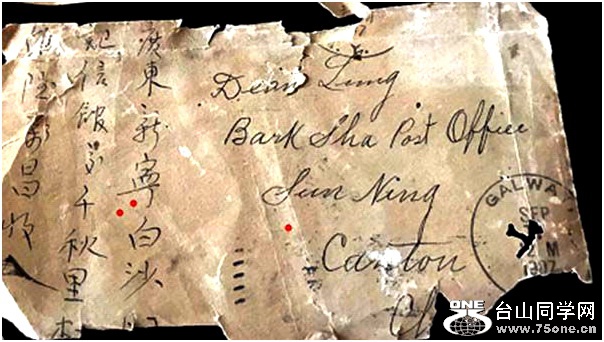 廣東新寧白沙
信館交千秋里
隆 昌收入
Dean Lung
Bark Sha Post Office
Sun Ning
Canton
Ch
GALWA
SEP
M
ONE
台山同学网
www.75one.cn